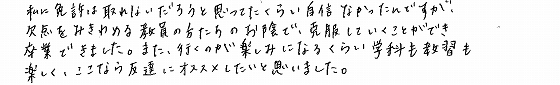 私に免許は取れないだろうと思ってたくらい自信なかったんですが、
欠点をみきわめる教員の方たちのお陰で、克服していくことができ
卒業できました。また、行くのが楽しみになるくらい学科も教習も
楽しく、ここなら友達にオススメしたいと思いました。